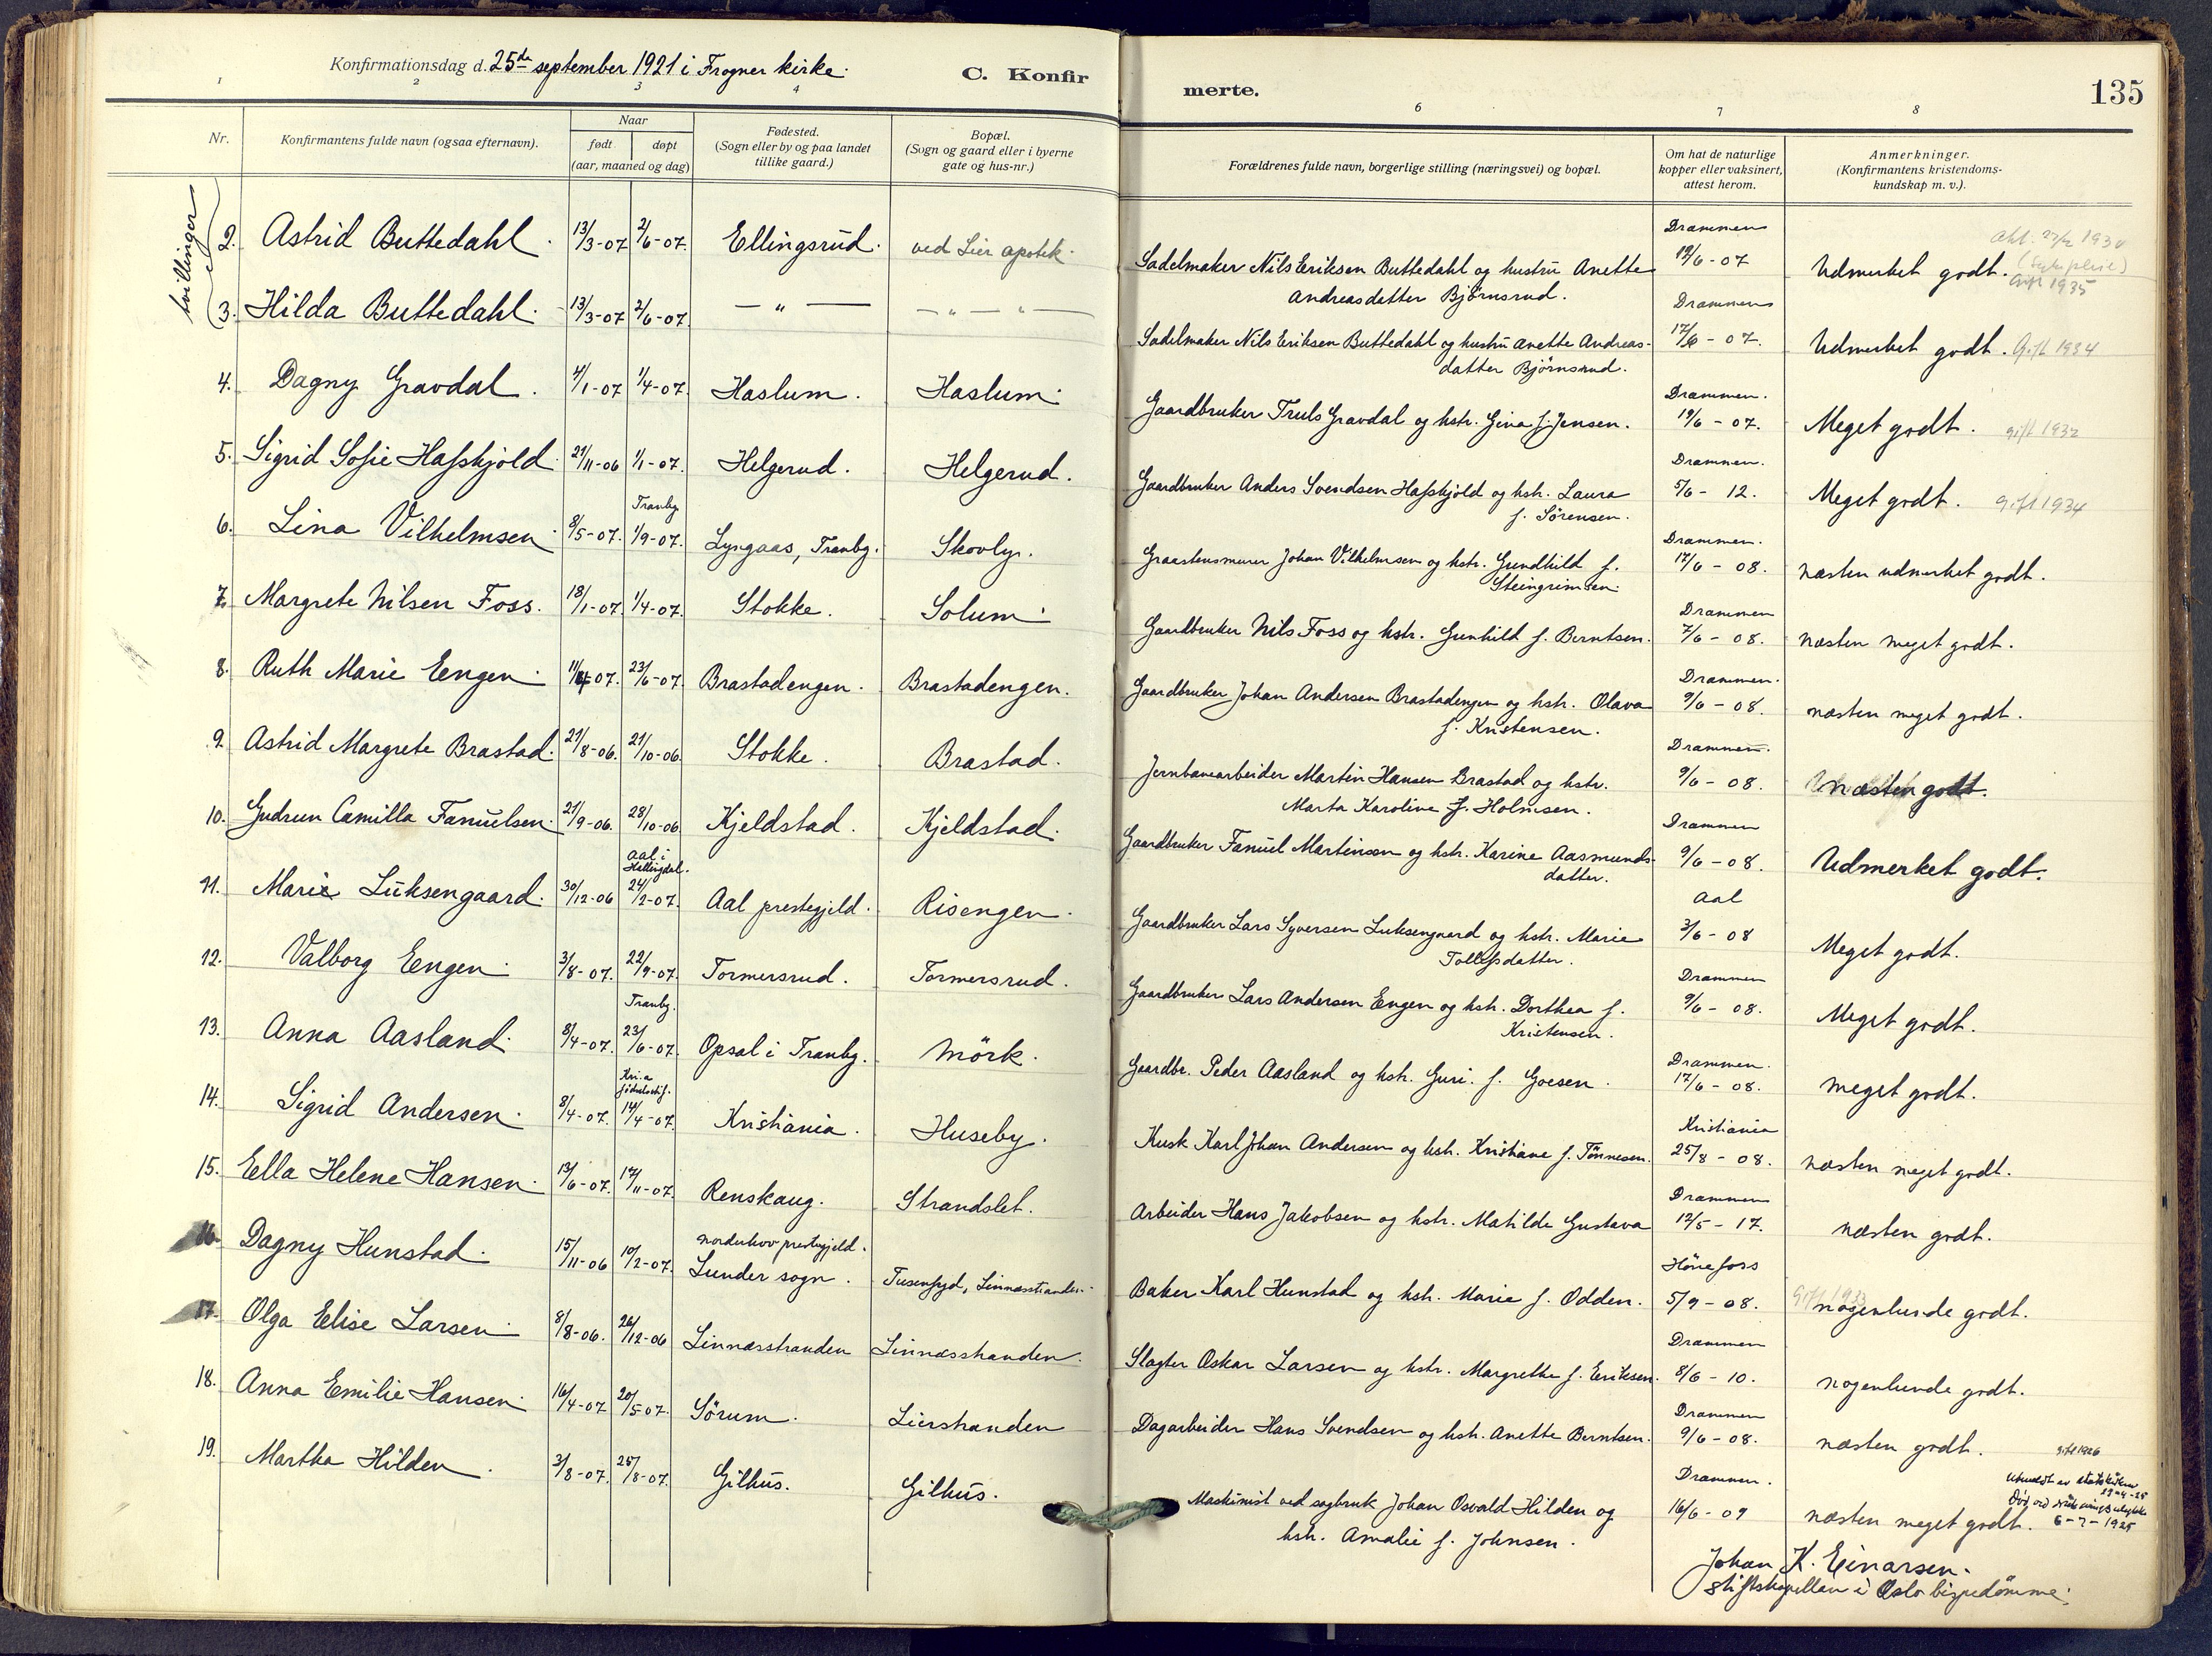 Konfirmationsdag d. 25de september 1921 i Frogner kirke.
C. Konfirmerte.
135
1 2 3 4 6 7 8
Nr. Konfirmantens fulde navn (ogsaa efternavn). Naar født døpt (aar, maaned og dag) Fødested. (Sogn eller by og paa landet tillike gaard.) Bopæl. (Sogn og gaard eller i byerne gate og hus-nr.) Forældrenes fulde navn, borgerlige stilling (næringsvei) og bopæl. Om hat de naturlige kopper eller vaksinert, attest herom. Anmerkninger. (Konfirmantens kristendoms-kundskap m. v.).
tvillinger
2. Astrid Buttedahl. 13/3-07 2/6-07. Ellingsrud. ved Lier apotek. Sadelmaker Nils Eriksen Buttedahl og hustru Anette Andreasdatter Bjørnsrud. Drammen 19/6-07 Udmerket godt. 1930 gift 1935
3. Hilda Buttedahl. 13/3-07 2/6-07. — " — — " — " — Sadelmaker Nils Eriksen Buttedahl og hustru Anette Andreas-datter Bjørnsrud. Drammen 17/6-07. Udmerket godt. Gift 1934
4. Dagny Gravdal. 4/1-07 1/4-07. Haslum. Haslum. Gaardbruker Truls Gravdal og hstr. Gina f. Jensen. Drammen. 19/6-07. Meget godt. gift 1932
5. Sigrid Sofie Hafskjold 21/11-06 1/1-07. Helgerud. Helgerud. Gaardbruker Anders Svendsen Hafskjold og hstr. Laura f. Sörensen. Drammen. 5/6-12. Meget godt. gift 1934
6. Lina Vilhelmsen 8/5-07. Tranby. 1/9-07. Lyngaas, Tranby. Skovly. Graastensmurer Johan Vilhelmsen og hstr. Gundhild f. Steingrimsen. Drammen. 17/6-08. næsten udmerket godt.
7. Margrete Nilsen Foss. 18/1-07. 1/4-07. Stokke. Solum. Gaardbruker Nils Foss og hstr. Gunhild f. Berntsen. Drammen 7/6-08. næsten meget godt.
8. Ruth Marie Eengen. 11/4 07. 23/6-07. Brastadengen. Brastadengen. Gaardbruker Johan Andersen Brastadengen og hstr. Olava f. Kristensen. Drammen. 9/6-08. næsten meget godt.
9. Astrid Margrete Brastad. 21/8-06. 21/10-06. Stokke. Brastad. Jernbanearbeider Martin Hansen Brastad og hstr. Marta Karoline f. Holmsen. Drammen. 9/6-08. næsten godt.
10. Gudrun Camilla Fanuelsen. 21/9-06. 28/10-06. Kjeldstad. Kjeldstad. Gaardbruker Fanuel Martinsen og hstr. Karine Aasmunds-datter. Drammen 9/6-08. Udmerket godt.
11. Marie Luksengaard. 30/12-06 Aal i Hallingdal. 24/2-07. Aal prestegjeld. Risengen. Gaardbruker Lars Syversen Luksengaard og hstr. Marie Tollefsdatter. Aal 3/6-08 Meget godt.
12. Valborg Eengen. 3/8-07. 22/9-07. Tormersrud. Tormersrud. Gaardbruker Lars Andersen Engen og hstr. Dorthea f. Kristensen. Drammen 9/6-08. Meget godt.
13. Anna Aasland. 8/4-07. Tranby. 23/6-07. Opsal i Tranby. Mörk. Gaardbr. Peder Aasland og hstr. Guri f. Goesen. Drammen. 17/6-08. meget godt.
14. Sigrid Andersen. 8/4-07. Kri.a fødselsstif. 14/4-07. Kristiania. Huseby. Kusk Karl Johan Andersen og hstr. Kristiane f. Tönnesen. Kristiania 25/8-08. næsten meget godt.
15. Eella Helene Hansen. 13/6-07. 17/11-07. Renskaug. Strandslet. Arbeider Hans Jakobsen og hstr. Matilde Gustava Drammen 12/5-17. næsten godt.
16. Dagny Hunstad. 15/11-06 10/2-07. Norderhov prestegjeld. Lunder sogn. Tusenfryd, Linnæsstranden. Baker Karl Hunstad og hstr. Marie f. Odden. Hönefoss 5/9-08. Gift 1933 nogenlunde godt.
17. Olga Elise Larsen. 8/8-06. 26/12-06 Linnæsstranden Linnæsstranden. Slagter Oskar Larsen og hstr. Margrethe f. Eriksen. Drammen 8/6-10. nogenlunde godt.
18. Anna Emilie Hansen. 16/4-07 20/5 07. Sörum. Lierstranden Dagarbeider Hans Svendsen og hstr. Anette Berntsen. Drammen 9/6-08. næsten godt. gift 1926
19. Martha Hilden. 3/8-07. 25/8-07. Gilhus. Gilhus. Maskinist ved sagbruk Johan Osvald Hilden og hstr. Amalie f. Johnsen. Drammen. 16/6-09 næsten meget godt. Utmeldt av statskirken Død ved 6-7-1925
Johan K. Einarsen.
stiftskapellan i Oslo bispedömme.